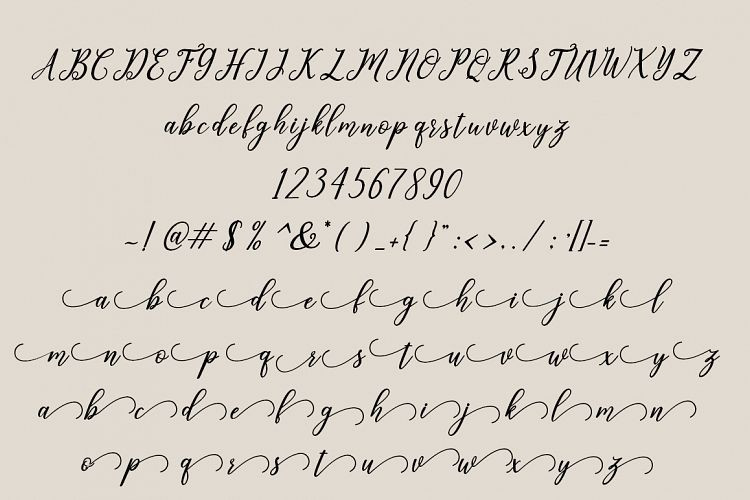 ABCDEFGHIJKLMNOPQRSTUVWXYZ
abcdefghijklmnopqrstuvwxyz
1234567890
~! @# $ % ^&* ( ) _+{ }":<>.. / : '[]-=
a b c d e f g h i j k l
m n o p q r s t u v w x y z
a b c d e f g h i j k l m n
o p q r s t u v w x y z